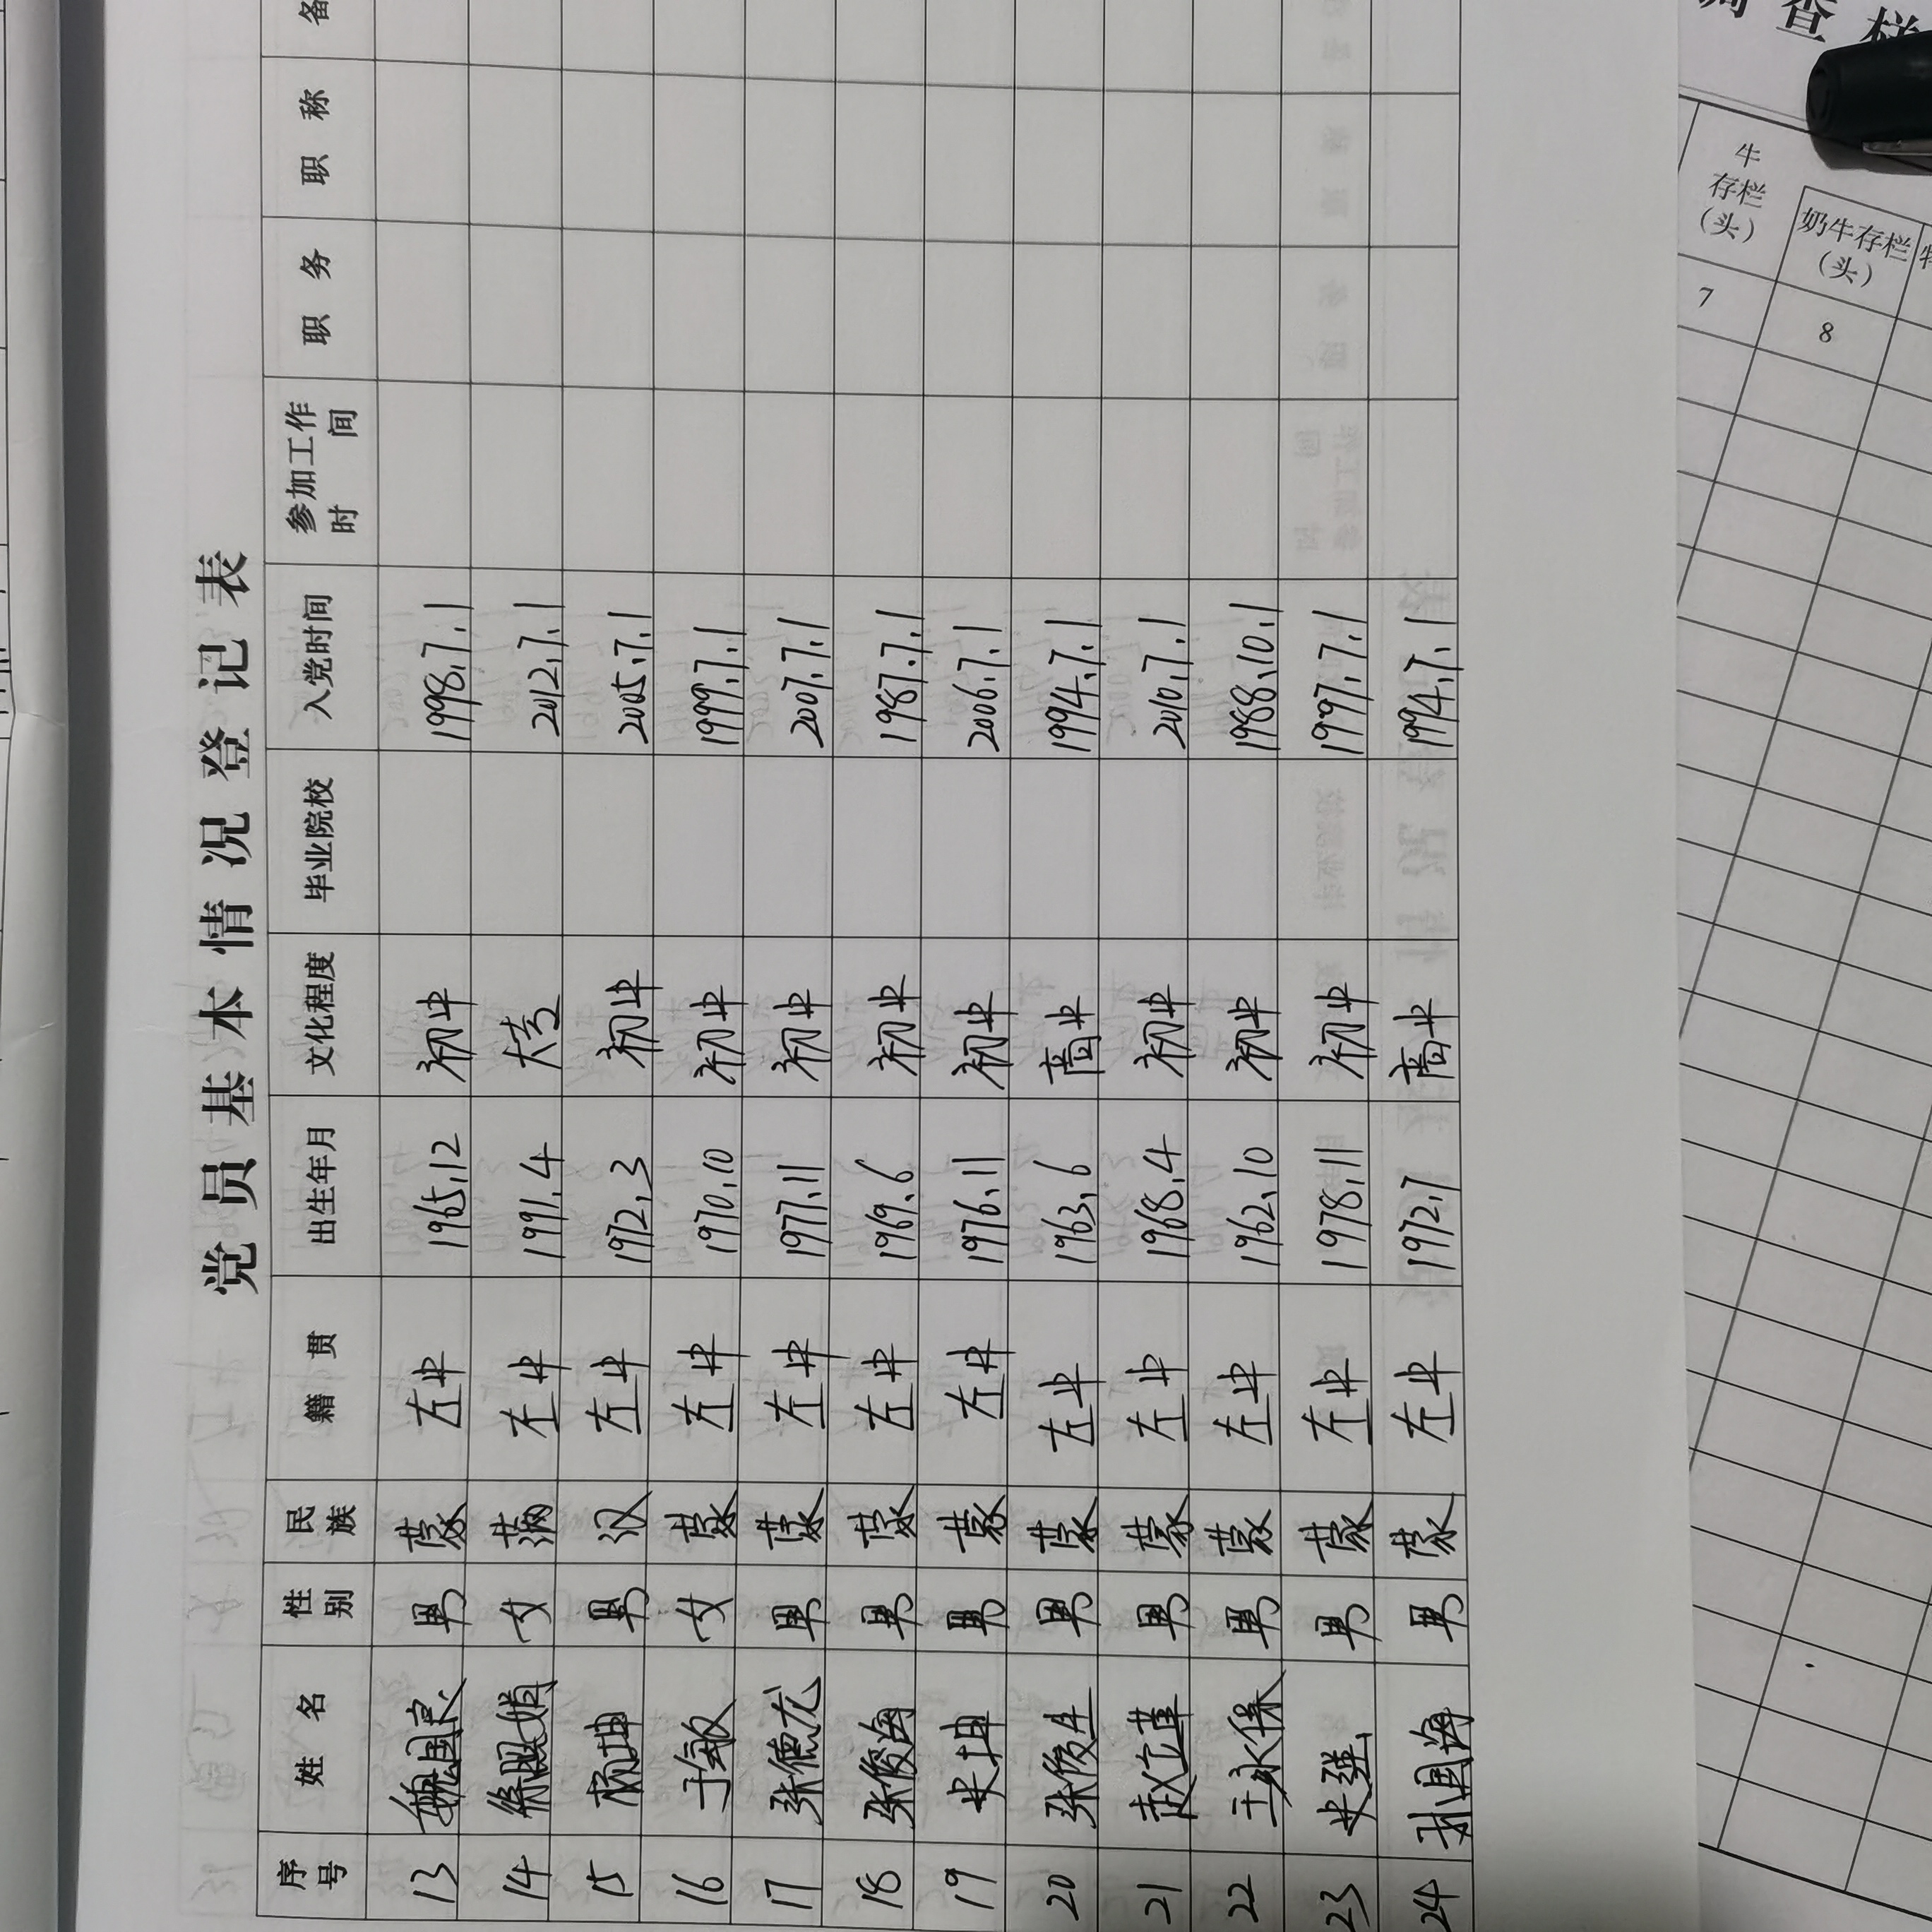 党员基本情况登记表
序号 姓名 性别 民族 籍贯 出生年月 文化程度 毕业院校 入党时间 参加工作时间 职务 职称 备
13 魏国良 男 蒙 左中 1965.12 初中 1998.7.1
14 女 满 左中 1991.4 大专 2012.7.1
15 杨坤 男 汉 左中 1972.3 初中 2005.7.1
16 于敏 女 蒙 左中 1970.10 初中 1999.7.1
17 张德龙 男 蒙 左中 1977.11 初中 2007.7.1
18 张俊海 男 蒙 左中 1969.6 初中 1987.7.1
19 史坤 男 蒙 左中 1976.11 初中 2006.7.1
20 张俊生 男 蒙 左中 1963.6 高中 1994.7.1
21 男 蒙 左中 1968.4 初中 2010.7.1
22 王永保 男 蒙 左中 1962.10 初中 1988.10.1
23 史强 男 蒙 左中 1978.11 初中 1997.7.1
24 孙国海 男 蒙 左中 1972.7 高中 1994.7.1
调查样
牛存栏（头）
奶牛存栏（头）
7
8